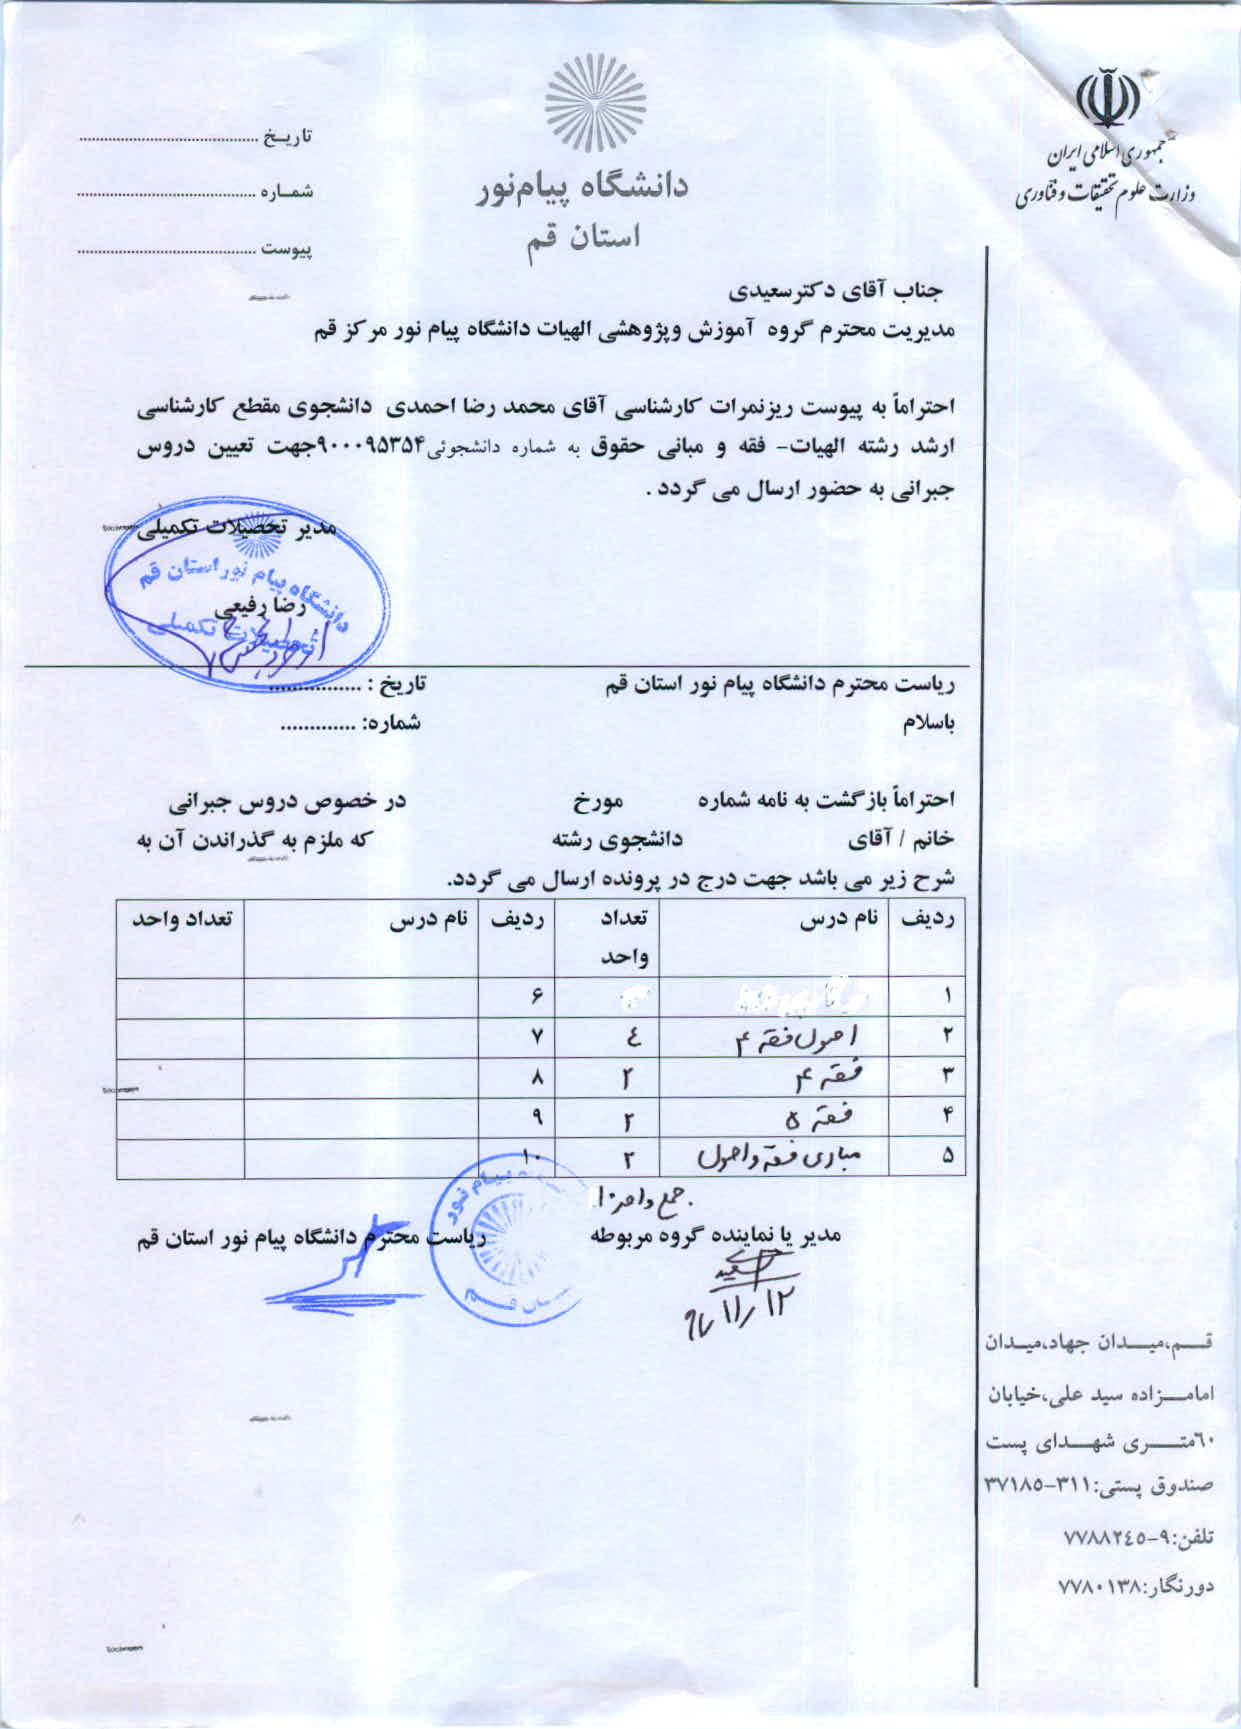 جمهوری اسلامی ایران
وزارت علوم تحقیقات و فناوری
دانشگاه پیام‌نور
استان قم
تاریـخ ............................................
شمـاره ............................................
پیوست ............................................
جناب آقای دکترسعیدی
مدیریت محترم گروه آموزش وپژوهشی الهیات دانشگاه پیام نور مرکز قم
احتراماً به پیوست ریزنمرات کارشناسی آقای محمد رضا احمدی دانشجوی مقطع کارشناسی
ارشد رشته الهیات- فقه و مبانی حقوق به شماره دانشجوئی۹۰۰۰۹۵۳۵۴جهت تعیین دروس
جبرانی به حضور ارسال می گردد .
مدیر تحصیلات تکمیلی
دانشگاه پیام نور استان قم
رضا رفیعی
تحصیلات تکمیلی
ریاست محترم دانشگاه پیام نور استان قم تاریخ : ................
باسلام شماره: .............
احتراماً بازگشت به نامه شماره مورخ در خصوص دروس جبرانی
خانم / آقای دانشجوی رشته که ملزم به گذراندن آن به
شرح زیر می باشد جهت درج در پرونده ارسال می گردد.
ردیف نام درس تعداد واحد ردیف نام درس تعداد واحد
۱ ۶
۲ اصول فقه ۴ ٤ ۷
۳ فقه ۴ ۲ ۸
۴ فقه ۵ ۲ ۹
۵ مبادی فقه و اصول ۲ ۱۰
جمع واحد ۱۰
مدیر یا نماینده گروه مربوطه ریاست محترم دانشگاه پیام نور استان قم
پیام نور
قم
قـــم،میـــدان جهاد،میـدان
امامـــزاده سید علی،خیابان
٦٠متـــری شهـــدای پست
صندوق پستی:۳۱۱-۳۷۱۸۵
تلفن:۹-۷۷۸۸۲٤۵
دورنگار:۷۷۸۰۱۳۸